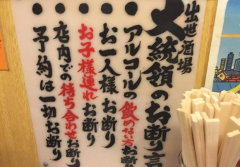 出世酒場
大統領のお断り言
アルコールの飲めない方お断り
お一人様お断り
お子様連れお断り
店内での待ち合わせお断り
予約は一切お断り